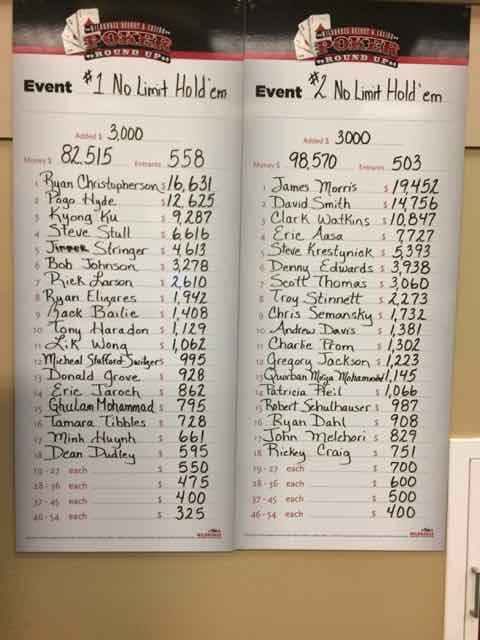 WILDHORSE DERBY & CASINO
POKER
ROUND UP
Event #1 No Limit Hold'em
Added $ 3,000
Money $ 82,515 Entrants 558
1 Ryan Christopherson $ 16,631
2 Pogo Hyde $ 12,625
3 Kyong Ku $ 9,287
4 Steve Stull $ 6,616
5 Stringer $ 4,613
6 Bob Johnson $ 3,278
7 Rick Larson $ 2,610
8 Ryan Elizares $ 1,942
9 Zack Bailie $ 1,408
10 Tony Haradon $ 1,129
11 Lik Wong $ 1,062
12 Micheal Stafford-Switzers 995
13 Donald Grove $ 928
14 Eric Jaroch $ 862
15 Ghulam Mohammad $ 795
16 Tamara Tibbles $ 728
17 Minh Huynh $ 661
18 Dean Dudley $ 595
19 - 27 each $ 550
28 - 36 each $ 475
37 - 45 each $ 400
46 - 54 each $ 325
POKER
ROUND UP
Event #2 No Limit Hold'em
Added $ 3000
Money $ 98,570 Entrants 503
1 James Morris $ 19452
2 David Smith $ 14,756
3 Clark Watkins $ 10,847
4 Eric Aasa $ 7,727
5 Steve Krestynick $ 5,393
6 Denny Edwards $ 3,938
7 Scott Thomas $ 3,060
8 Troy Stinnett $ 2,273
9 Chris Semansky $ 1,732
10 Andrew Davis $ 1,381
11 Charlie Prom $ 1,302
12 Gregory Jackson $ 1,223
13 Qurban Mohammad 1,145
14 Patricia Pfeil $ 1,066
15 Robert Schulhauser $ 987
16 Ryan Dahl $ 908
17 John Melchori $ 829
18 Rickey Craig $ 751
19 - 27 each $ 700
28 - 36 each $ 600
37 - 45 each $ 500
46 - 54 each $ 400